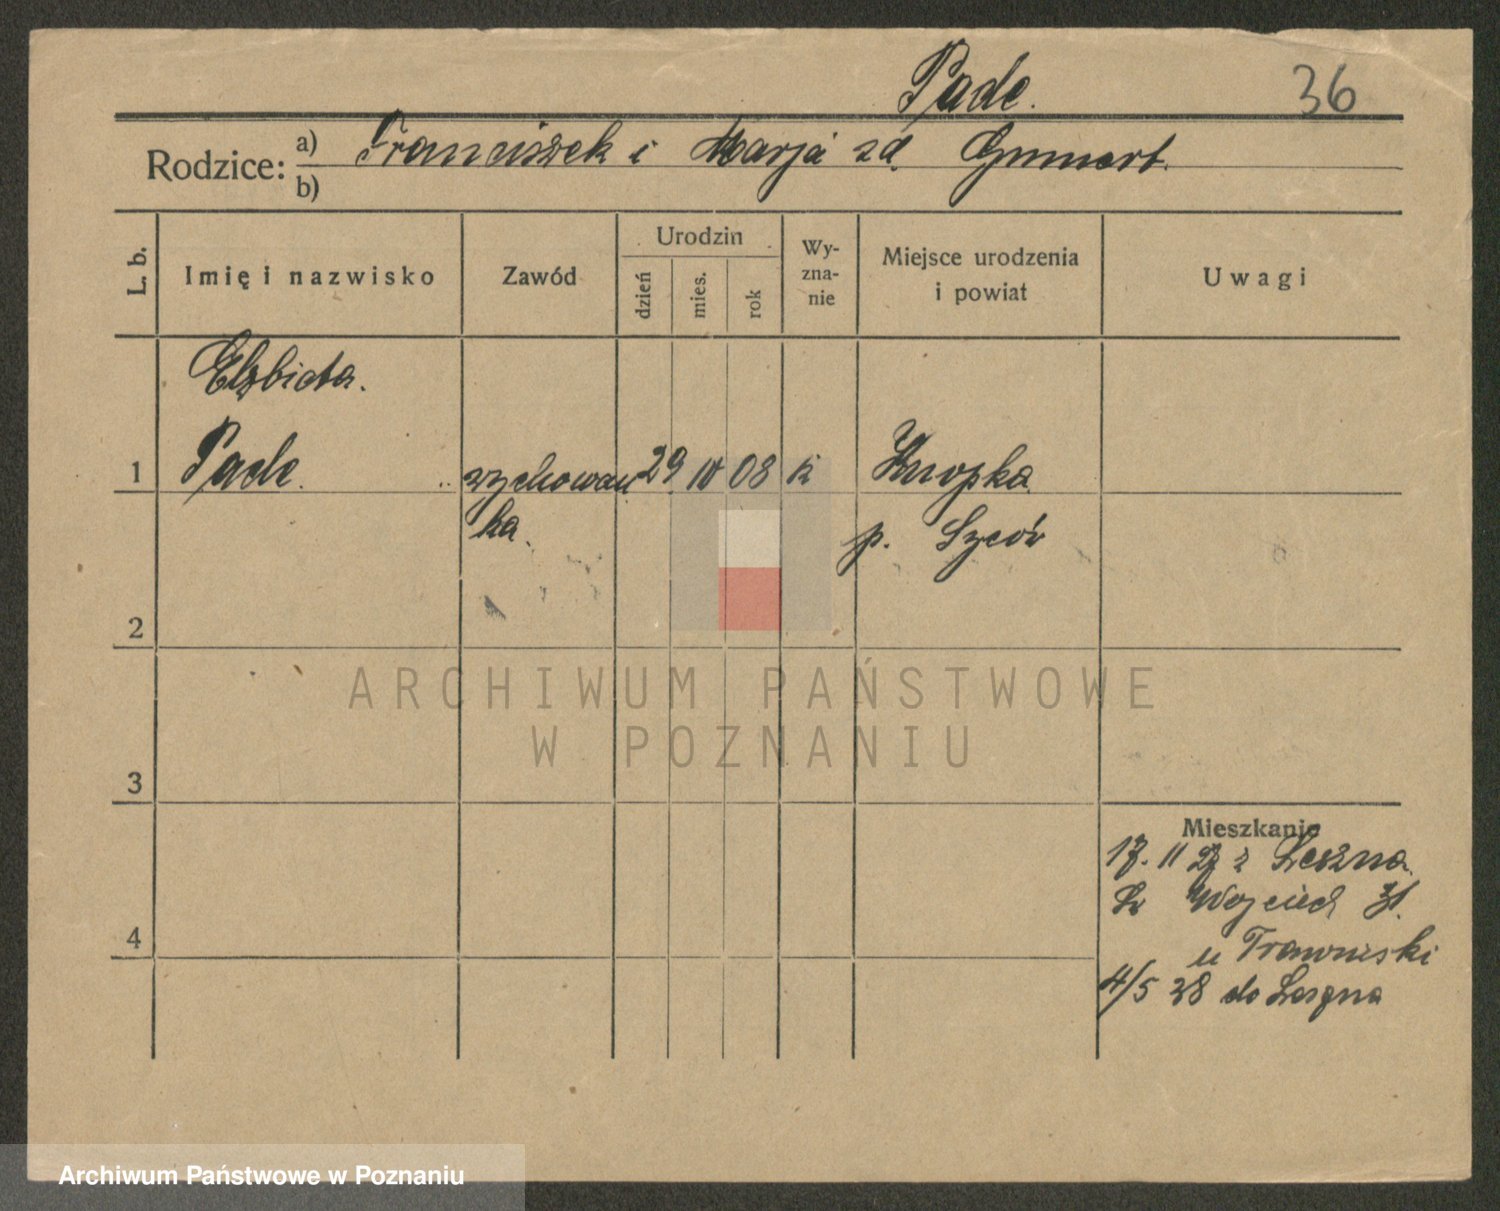 Pade.
36
Rodzice: a) Franciszek i Marja zd. Gmmert.
b)
L. b.
Imię i nazwisko
Zawód
Urodzin
dzień
mies.
rok
Wy-
zna-
nie
Miejsce urodzenia
i powiat
Uwagi
Elzbieta.
1 Pade. wychowan 29 IV 08 k
ka.
p. Syców
2
3
4
Mieszkanie
17. 11 27 z Leszna.
Wojciech 31.
u Trawinski
4/5 28 do Leszna
ARCHIWUM PAŃSTWOWE
W POZNANIU
Archiwum Państwowe w Poznaniu